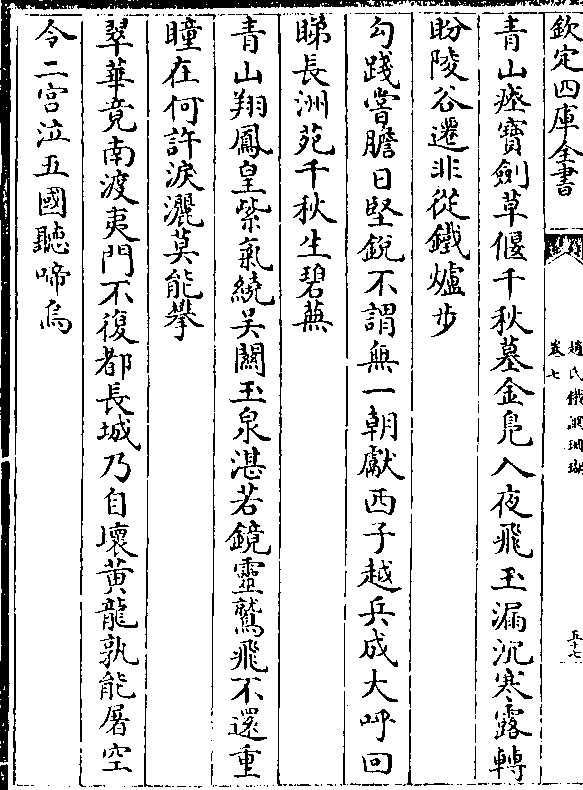 欽定四庫全書
趙氏鐵網珊瑚
卷七
五十七
青山瘞寶劍草偃千秋墓金鳬入夜飛玉漏沉寒露轉
盼陵谷遷非從鐵爐步
勾踐嘗膽日堅銳不謂無一朝獻西子越兵成大呼回
睇長洲苑千秋生碧蕪
青山翔鳳皇紫氣繞吴關玉泉湛若鏡靈鷲飛不還重
瞳在何許淚灑莫能攀
翠華竟南渡夷門不復都長城乃自壞黃龍孰能屠空
令二宮泣五國聽啼烏